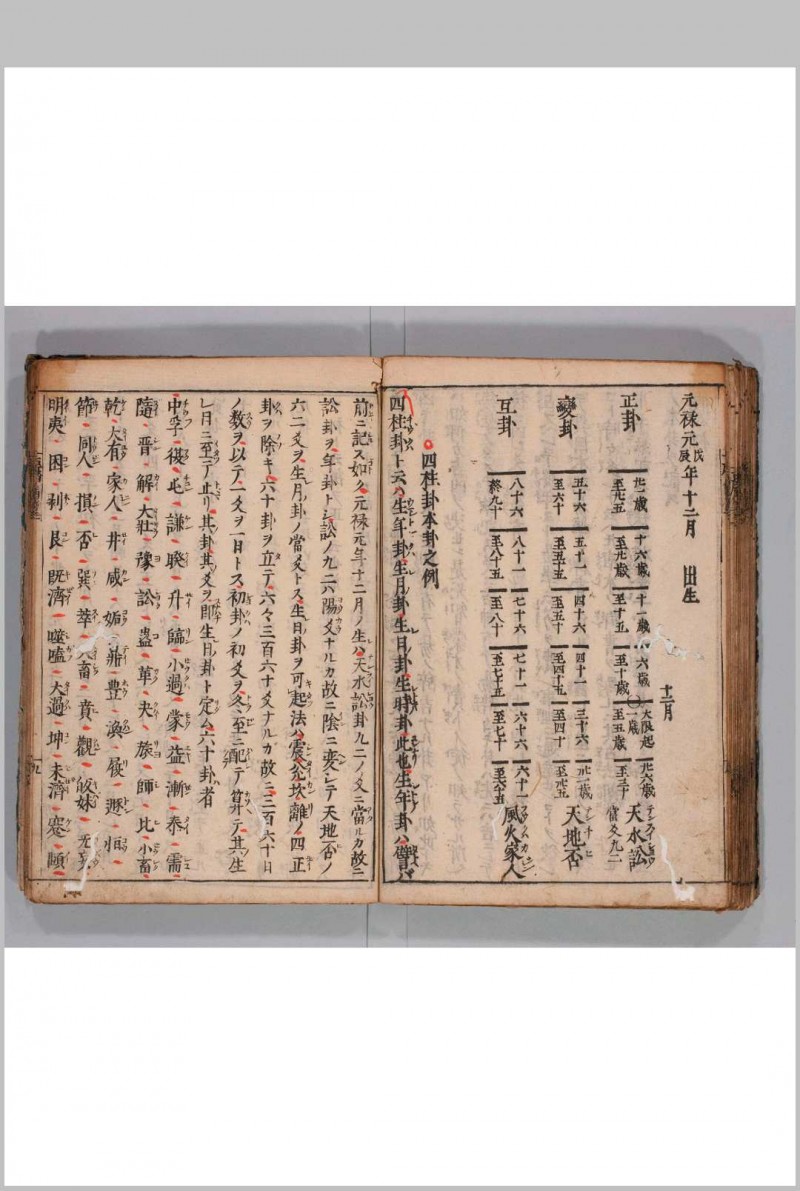 元禄元戊辰年十二月 出生
十二月
正卦
廿一歳 至廿五
十六歳 至廿歳
十一歳 至十五
六歳 至十歳
大限起 一歳 至五歳
廿六歳 至三十
天水訟 當爻九二
變卦
五十六 至六十
五十一 至五十五
四十六 至五十
四十一 至四十五
三十六 至四十
卅一歳 至卅五
天地否
互卦
八十六 終九十
八十一 至八十五
七十六 至八十
七十一 至七十五
六十六 至七十
六十一 至六十五
風火家人
四柱卦本卦之例
四柱卦ト云ハ生年卦生月卦生日卦生時卦此也生年卦ハ譬バ
前ニ記ス如ク元禄元年十二月ノ生ハ天水訟卦九二ノ爻ニ當ルカ故ニ
訟卦ヲ年卦トシ訟ノ九二ハ陽爻ナルカ故ニ陰ニ変シテ天地否ノ
六二爻ヲ生月卦ノ當爻トス生日卦ヲ可起法ハ震兌坎離ノ四正
卦ヲ除キ六十卦ヲ立テ六々三百六十爻ナルカ故ニ三百六十日
ノ数ヲ以テ一爻ヲ一日トス初卦ノ初爻ヲ冬至ニ配テ算テ其生
レ月ニ至テ止リ其卦其爻ヲ即生日卦ト定ム六十卦者
中孚 復 屯 謙 睽 升 臨 小過 蒙 益 漸 泰 需
隨 晋 解 大壯 豫 訟 蠱 革 夬 旅 師 比 小畜
乾 大有 家人 井 咸 姤 鼎 豊 渙 履 遯 恒
節 同人 損 否 巽 萃 大畜 賁 觀 歸妹 无妄
明夷 困 剥 艮 既濟 噬嗑 大過 坤 未濟 蹇 頤